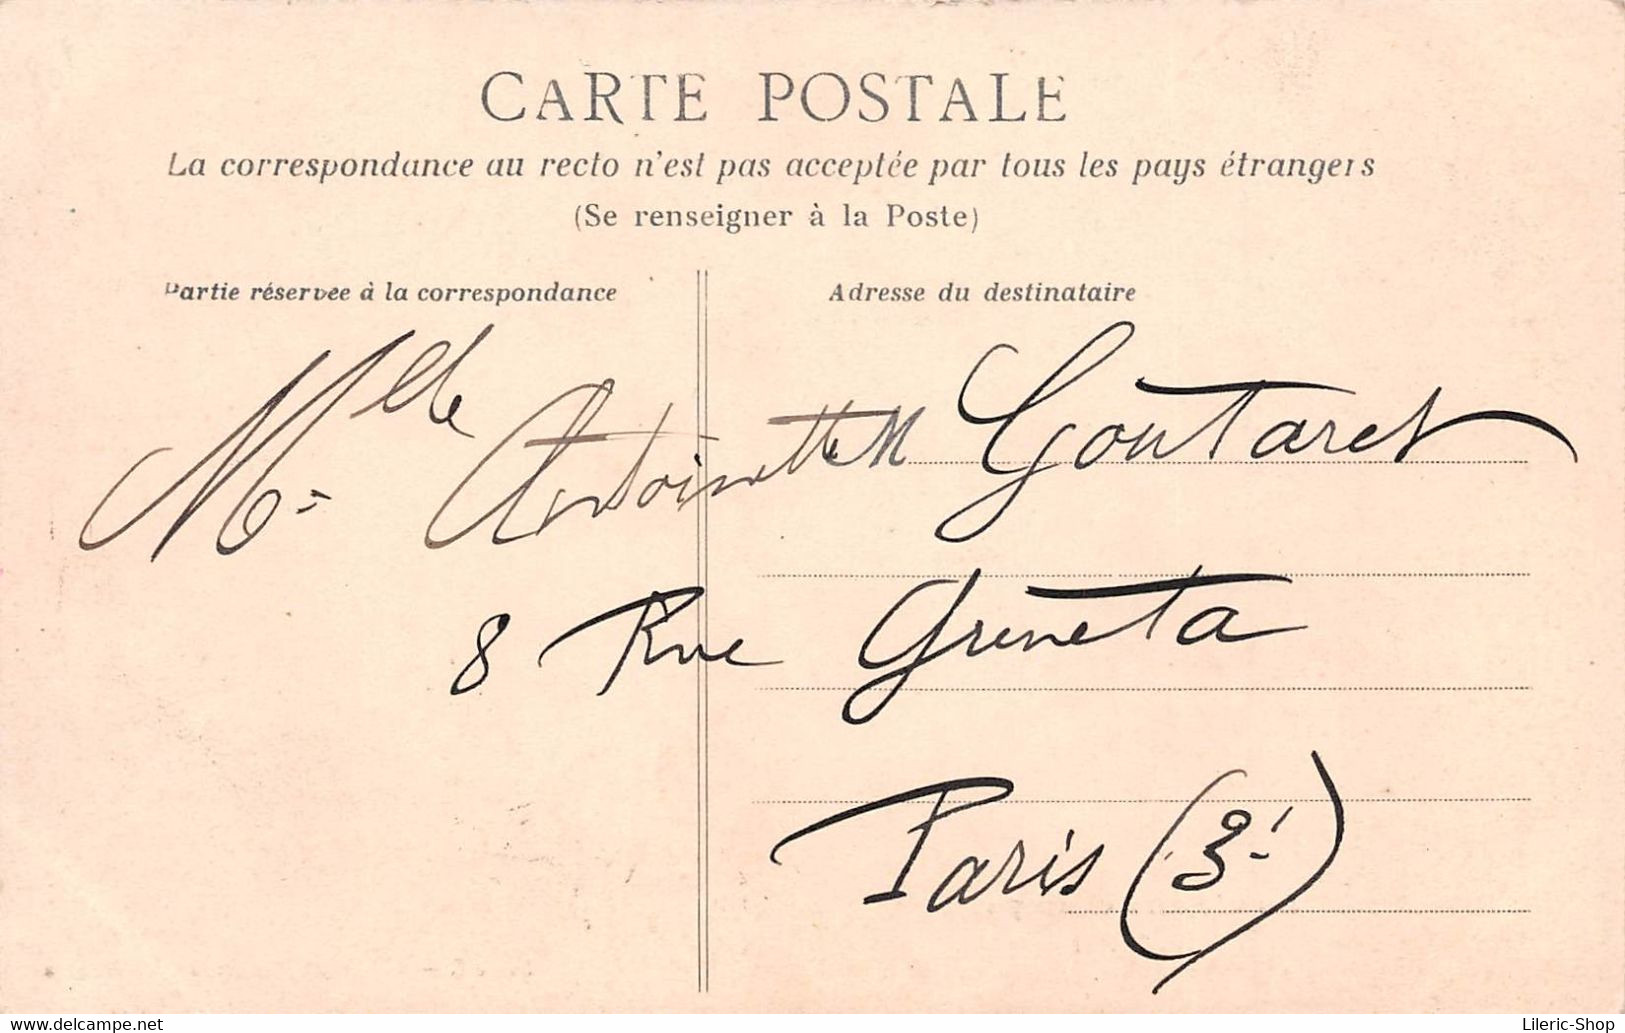 CARTE POSTALE
La correspondance au recto n'est pas acceptée par tous les pays étrangers
(Se renseigner à la Poste)
Partie réservée à la correspondance
Adresse du destinataire
Mlle Antoinette Goutaret
8 Rue Greneta
Paris (3)
Lileric-Shop